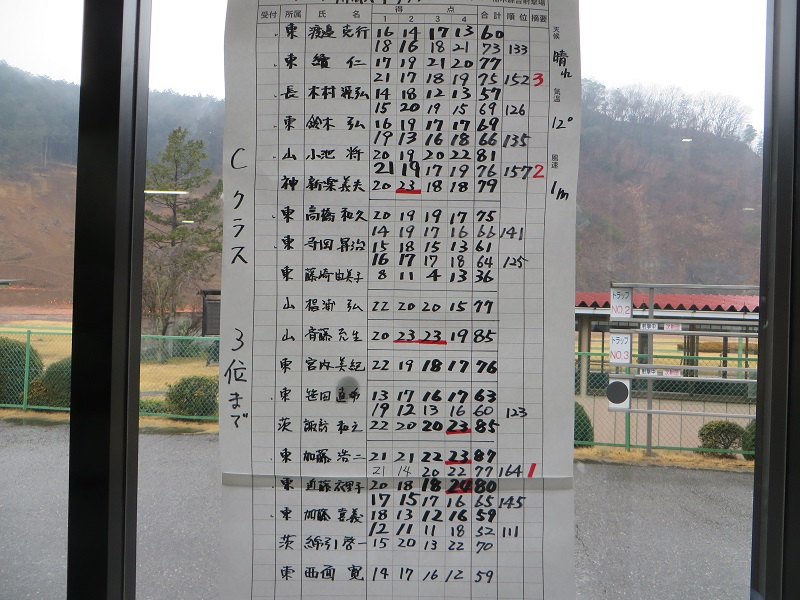 受付 所属 氏 名 得 点 合計 順位 摘要
1 2 3 4
東 渡邉 克行 16 14 17 13 60
18 16 18 21 73 133
東 續 仁 17 19 21 20 77
21 17 18 19 75 152 3
長 木村 源弘 14 18 12 13 57
15 20 19 15 69 126
東 鈴木 弘 16 19 17 17 69
19 13 16 18 66 135
山 小池 将 20 19 20 22 81
21 19 17 19 76 157 2
神 新楽 義夫 20 23 18 18 79
東 高橋 和久 20 19 19 17 75
14 19 17 16 66 141
東 寺田 昇治 15 18 15 13 61
16 17 17 18 64 125
東 藤崎 由美子 8 11 4 13 36
山 弘 22 20 20 15 77
山 斉藤 充生 20 23 23 19 85
東 宮内 美紀 22 19 18 17 76
東 笹田 直希 13 17 16 17 63
19 12 13 16 60 123
茨 諏訪 和之 22 20 20 23 85
東 加藤 浩二 21 21 22 23 87
21 14 20 22 77 164 1
東 近藤 衣里子 20 18 18 24 80
17 15 17 16 65 145
東 加藤 喜義 18 13 12 16 59
12 11 11 18 52 111
茨 綿引 啓一 15 20 13 22 70
東 西面 寛 14 17 16 12 59
天候
晴れ
気温
12°
風速
1m
Cクラス 3位まで
トラップ
NO.2
トラップ
NO.3